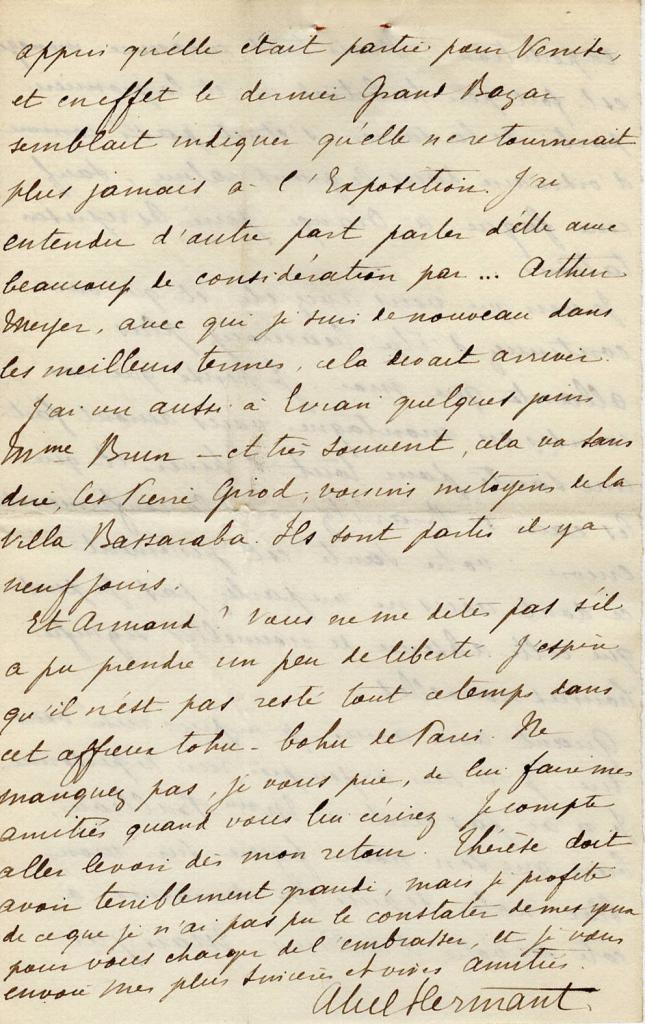 appris qu'elle était partie pour Venise,
et en effet le dernier Grand Bazar
semblait indiquer qu'elle ne retournerait
plus jamais à l'Exposition. J'ai
entendu d'autre part parler d'elle avec
beaucoup de considération par... Arthur
Meyer, avec qui je suis de nouveau dans
les meilleurs termes, cela devait arriver.
J'ai vu aussi à Evian quelques jours
Mme Brun — et très souvent, cela va sans
dire, les Pierre Girod, voisins mitoyens de la
villa Bassaraba. Ils sont partis il y a
neuf jours.
Et Armand? Vous ne me dites pas s'il
a pu prendre un peu de liberté. J'espère
qu'il n'est pas resté tout ce temps dans
cet affreux tohu-bohu de Paris. Ne
manquez pas, je vous prie, de lui faire mes
amitiés quand vous lui écrirez. Je compte
aller le voir dès mon retour. Thérèse doit
avoir terriblement grandi, mais je profite
de ce que je n'ai pas pu le constater de mes yeux
pour vous charger de l'embrasser, et je vous
envoie mes plus sincères et vives amitiés.
Abel Hermant